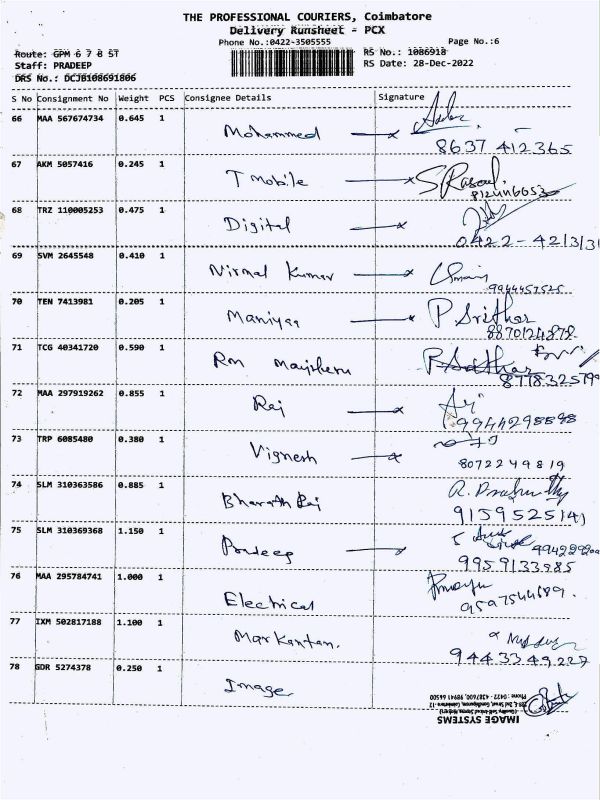 THE PROFESSIONAL COURIERS, Coimbatore
Delivery Runsheet - PCX
Phone No.:0422-3505555
Page No.:6
Route: GPM 6 7 8 ST
RS No.: 1086918
Staff: PRADEEP
RS Date: 28-Dec-2022
DRS No.: DCJB108691806
S No Consignment No Weight PCS Consignee Details Signature
66 MAA 567674734 0.645 1
Mohammed
8637 412365
67 AKM 5057416 0.245 1
T mobile
S Rasool.
68 TRZ 110005253 0.475 1
Digital
0422-42/3/31
69 SVM 2645548 0.410 1
Nirmal Kumar
9944457525
70 TEN 7413981 0.205 1
Maniyaa
P. Sridhar
8870124878
71 TCG 40341720 0.590 1
Rm
8778325799
72 MAA 297919262 0.855 1
Raj
9944298898
73 TRP 6085480 0.380 1
Vignesh
8072249819
74 SLM 310363586 0.885 1
Bharath Raj
9159525141
75 SLM 310369368 1.150 1
Pradeep
9959133985
76 MAA 295784741 1.000 1
Electrical
9597544689.
77 IXM 502817188 1.100 1
Markantan.
9443349227
78 GDR 5274378 0.250 1
Image
IMAGE SYSTEMS
Phone : 0422 - 4387600, 98941 64500